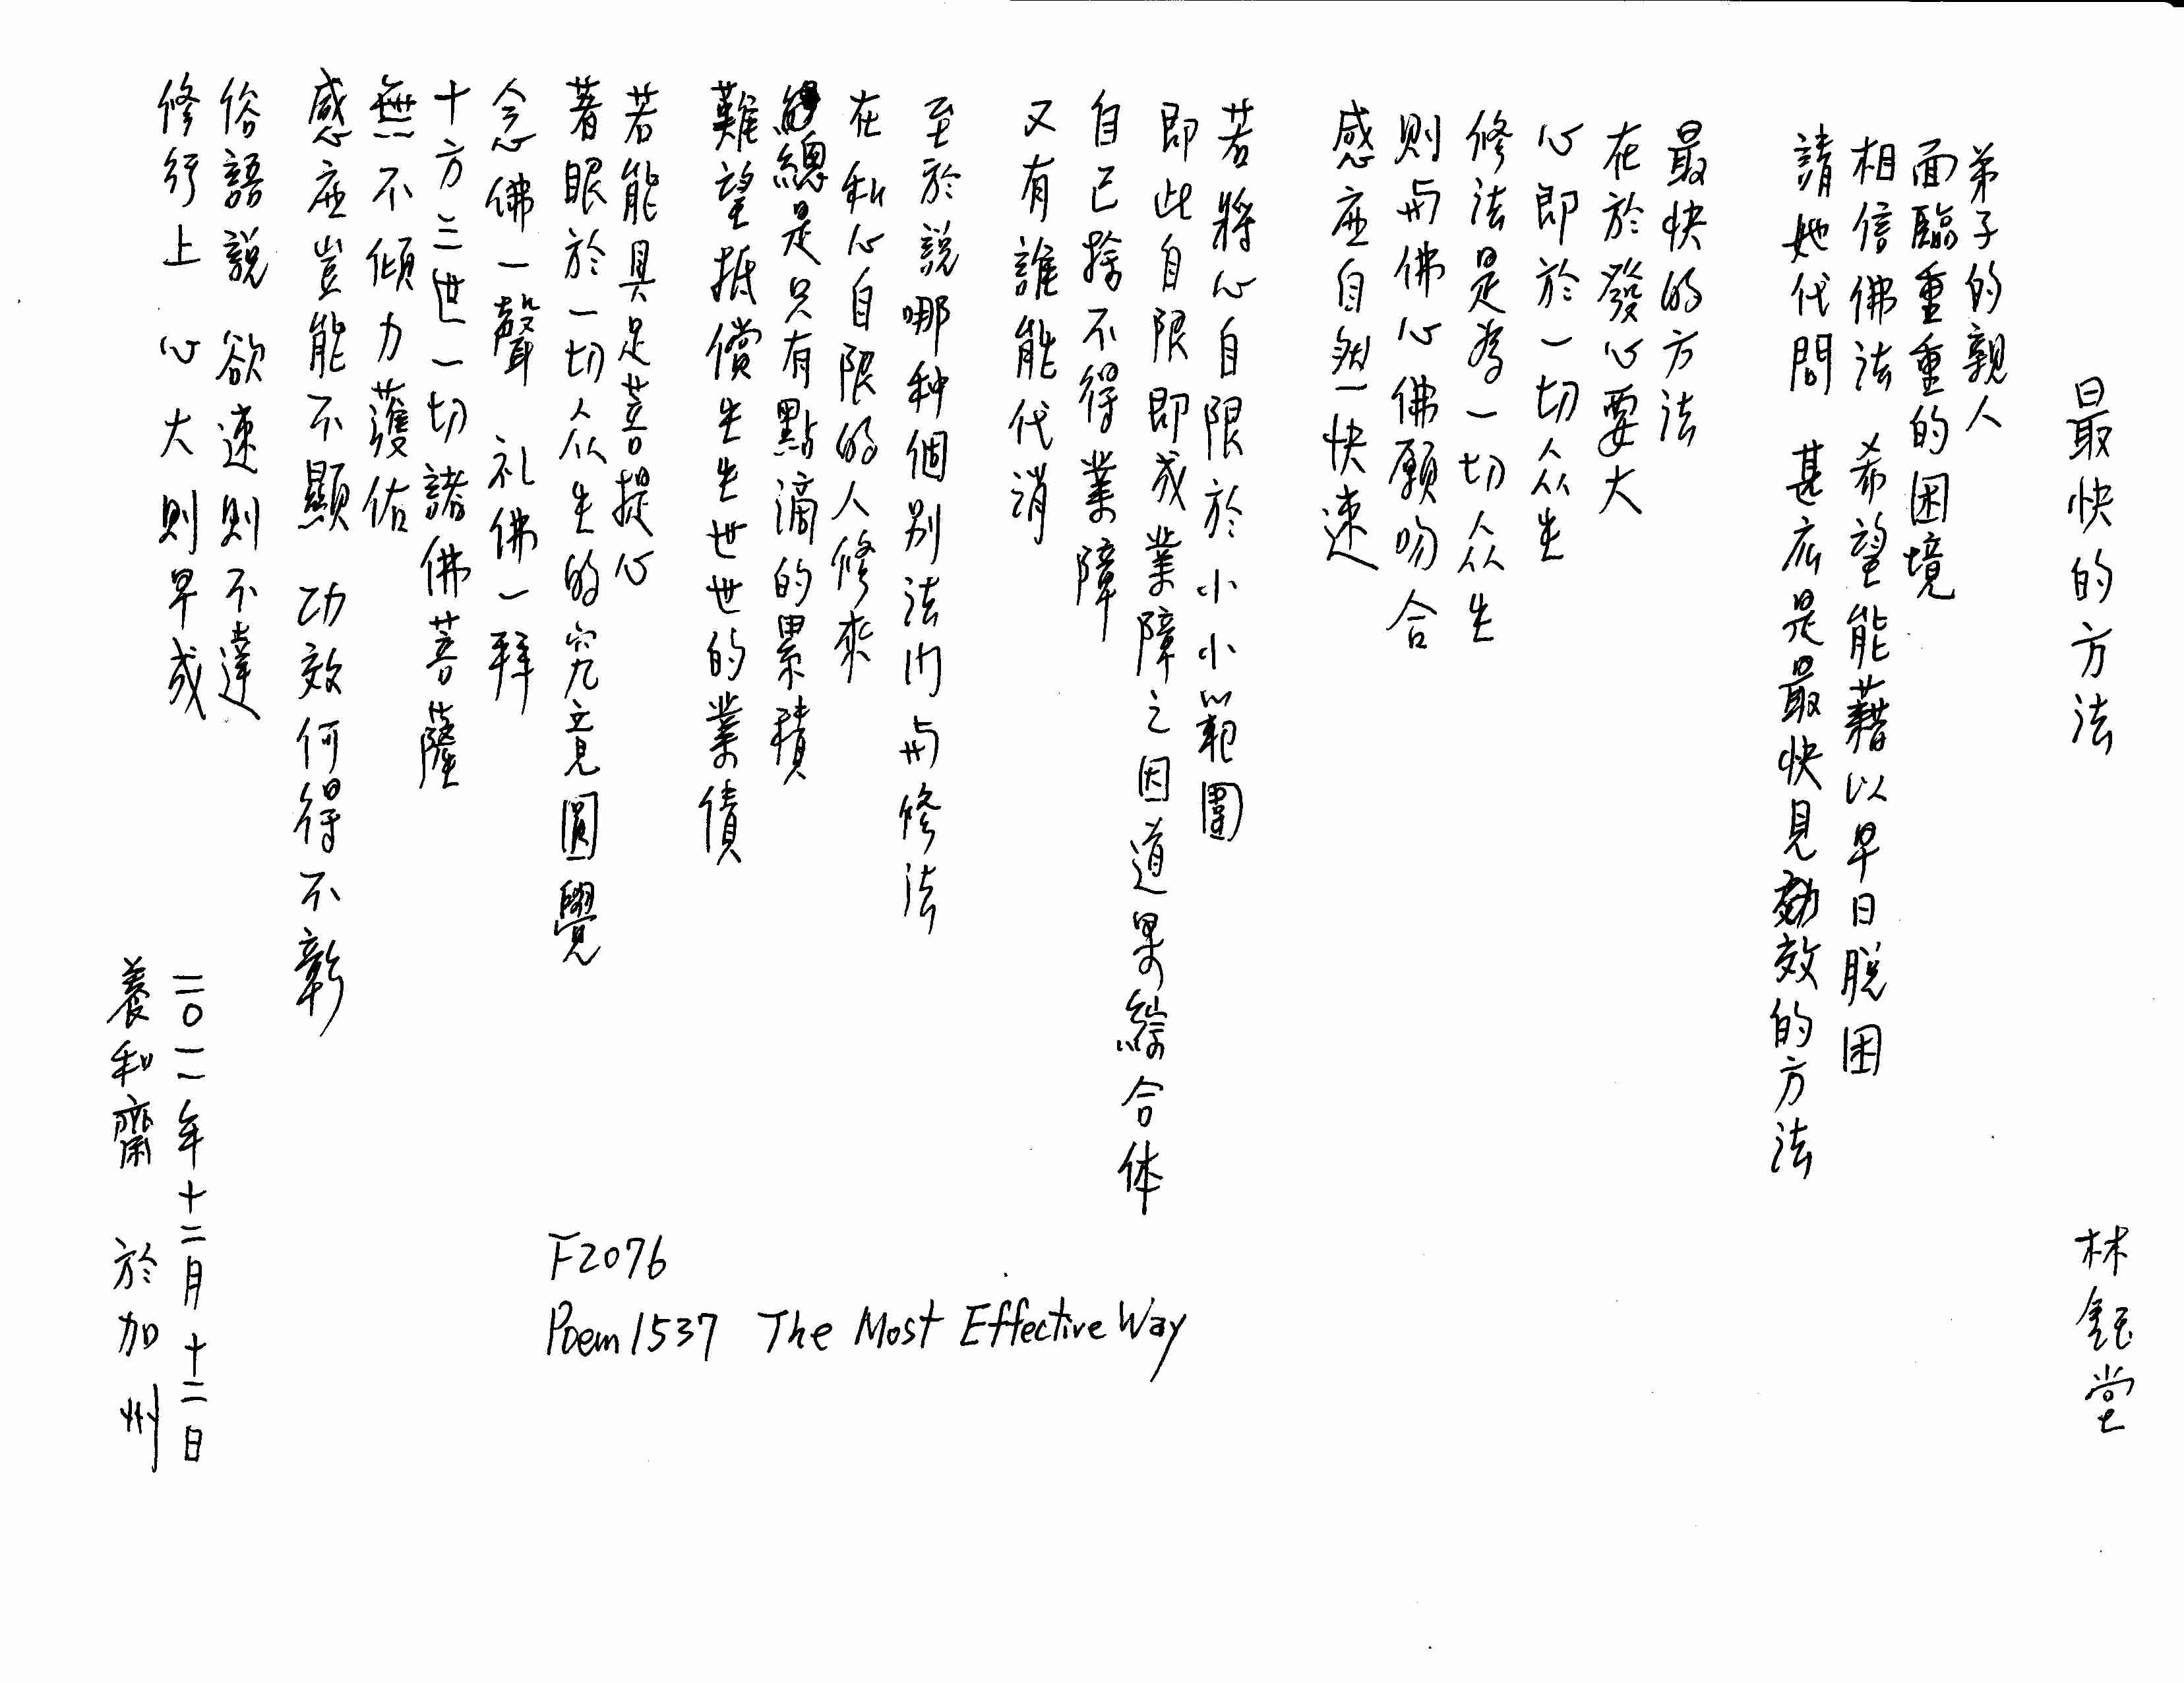 最快的方法
林鈺堂
弟子的親人
面臨重重的困境
相信佛法 希望能藉以早日脫困
請她代問 甚麼是最快見效的方法
最快的方法
在於發心要大
心即於一切众生
修法是為一切众生
則与佛心佛願吻合
感应自然快速
若將心自限於小小範圍
即此自限即成業障之因道果綜合体
自己捨不得業障
又有誰能代消
至於説哪种個別法门与修法
在私心自限的人修來
總是只有點滴的累積
難望抵償生生世世的業債
若能具足菩提心
著眼於一切众生的究竟圓覺
念佛一聲 礼佛一拜
十方三世一切諸佛菩薩
無不傾力護佑
感应豈能不顯 功效何得不彰
俗語說 欲速則不達
修行上 心大則早成
二〇一一年十二月十二日
養和齋 於加州
F2076
Poem 1537 The Most Effective Way